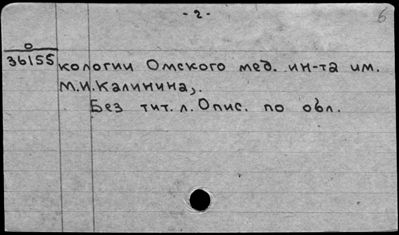 - 2 -
6
0
36155 кологии Омского мед. ин-та им.
М.И.Калинина,.
Без тит. л. Опис. по обл.